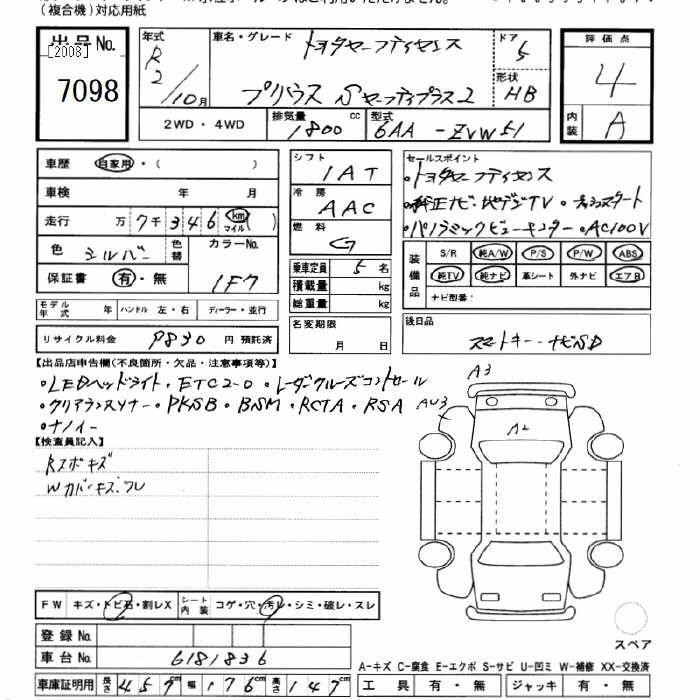 (複合機)対応用紙
出品No. 年式 車名・グレード トヨタセーフティセンス ドア 5 評価点
[2008] R 2/10月 プリウス Sセーフティプラス2 形状 HB 4
7098 2WD・4WD 排気量 1800 cc 型式 6AA-ZVW51 内装 A
車歴 自家用・( )
車検 年 月
走行 万 7千346 km(マイル)
色 シルバー 色替 カラーNo.
保証書 有・無 1F7
モデル年式 年 ハンドル 左・右 ディーラー・並行
リサイクル料金 9830 円 預託済
シフト IAT
冷房 AAC
燃料 G
乗車定員 5 名
積載量 kg
総重量 kg
名変期限 月 日
セールスポイント
・トヨタセーフティセンス
・純正ナビ・地デジTV・プッシュスタート
・パノラミックビューモニター・AC100V
装備品 S/R 純A/W P/S P/W ABS
純TV 純ナビ 革シート 外ナビ エアB
ナビ型番:
後日品
スマートキー・ナビSD
【出品店申告欄(不良箇所・欠品・注意事項等)】
・LEDヘッドライト・ETC2.0・レーダークルーズコントロール
・クリアランスソナー・PKSB・BSM・RCTA・RSA
・ナノイー
【検査員記入】
Rスポキズ
Wカバーキズ、ワレ
A3
AU3
A2
FW キズ・トビ石・割レX シート内装 コゲ・穴・汚レ・シミ・破レ・スレ
登録No.
車台No. 6181836
車庫証明用 長さ 457cm 幅 176cm 高さ 147cm
スペア
A-キズ C-腐食 E-エクボ S-サビ U-凹ミ W-補修 XX-交換済
工具 有・無 ジャッキ 有・無